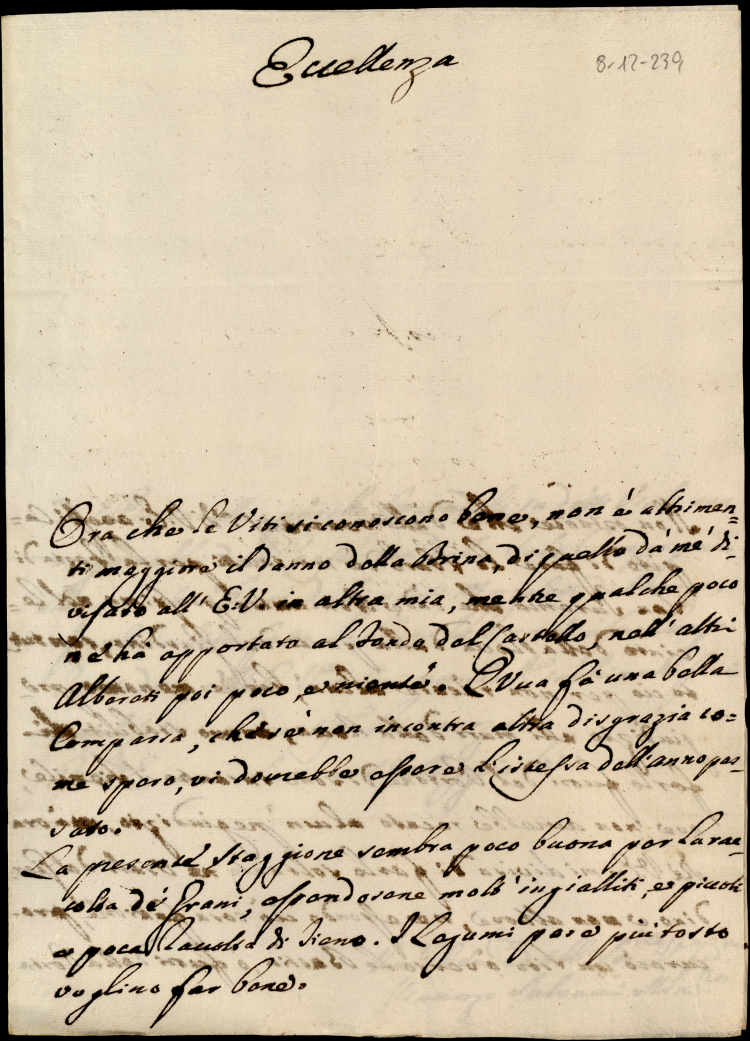 Eccellenza
8-12-239
Ora che le Viti si conoscono bene, non é altrimen=
ti maggiore il danno della Brina, di quello dà mé di=
visato all' E:V. in altra mia, mentre qualche poco
né hà apportato al fondo del Castello, nell' altri
Alberati poi poco, e niente. L'Vua fà una bella
Comparsa, che sé non incontra altra disgrazia co=
me spero, vi dourebbe essere l'istessa dell'anno pas=
sato.
La presente staggione sembra poco buona per la rac=
colta dé Grani, essendosene molti ingialliti, e piccoli
e poca raccolta di fieno. I Legumi pare piutosto
voglino far bene.